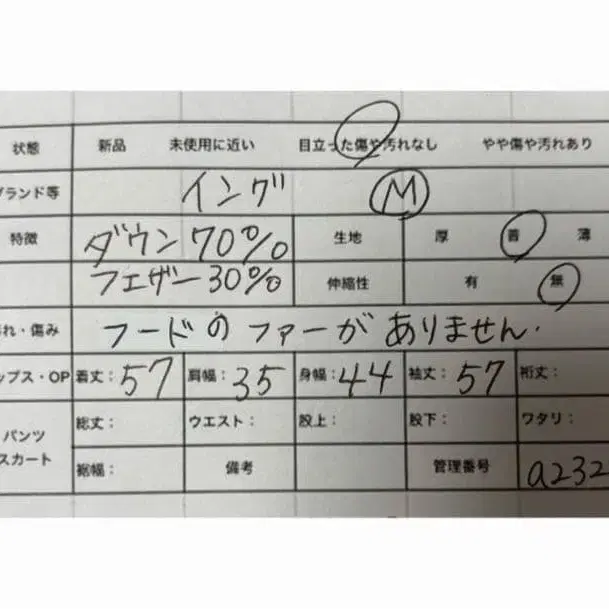 状態 新品 未使用に近い 目立った傷や汚れなし やや傷や汚れあり
ブランド等 イング M
特徴 ダウン 70% 生地 厚 普 薄
フェザー 30% 伸縮性 有 無
れ・傷み フードのファーがありません.
ップス・OP 着丈：57 肩幅：35 身幅：44 袖丈：57 裄丈：
パンツ 総丈： ウエスト： 股上： 股下： ワタリ：
スカート 裾幅： 備考 管理番号 a232